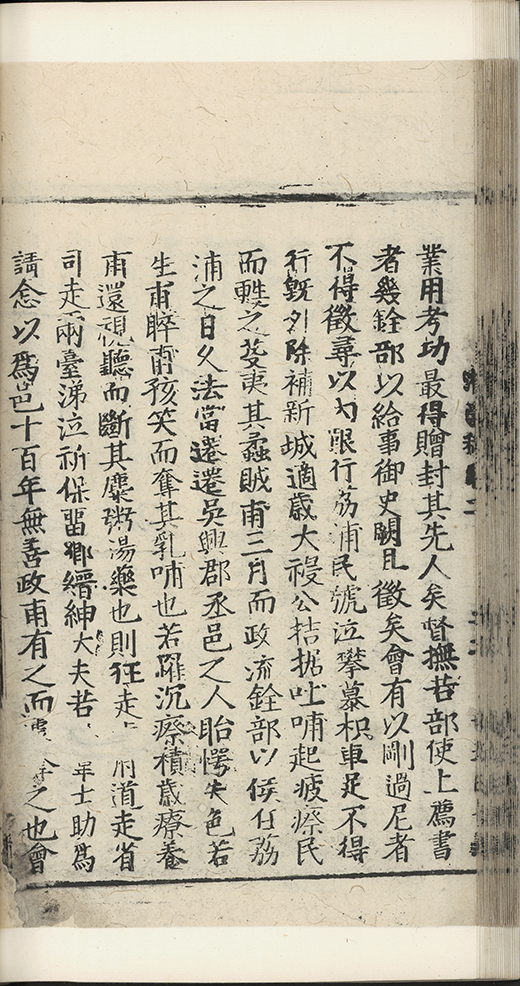 業用考功最得贈封其先人矣督撫若部使上薦書
者幾銓部以給事御史闕且徵矣會有以剛過尼者
不得徵尋以內艱行荔浦民號泣攀慕枳車足不得
行既外除補新城適歲大祲公拮据吐哺起疲瘵民
而甦之芟夷其蟊賊甫三月而政流銓部以倐任荔
浦之日久法當遷遷吳興郡丞邑之人眙愕失色若
生甫睟甫孩笑而奪其乳哺也若罹沉瘵積歲療養
甫還視聽而斷其麋粥湯藥也則狂走 府道走省
司走兩臺涕泣祈保留鄉縉紳大夫若 士助為
請念以為邑十百年無善政甫有之而 之也會